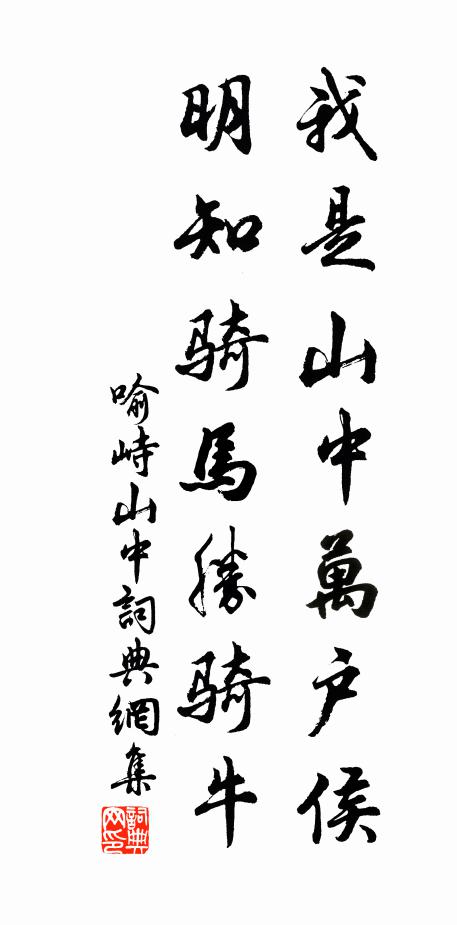 我是山中萬户侯
明知骑馬勝骑牛
喻峙山中詞典網集
詞典网印